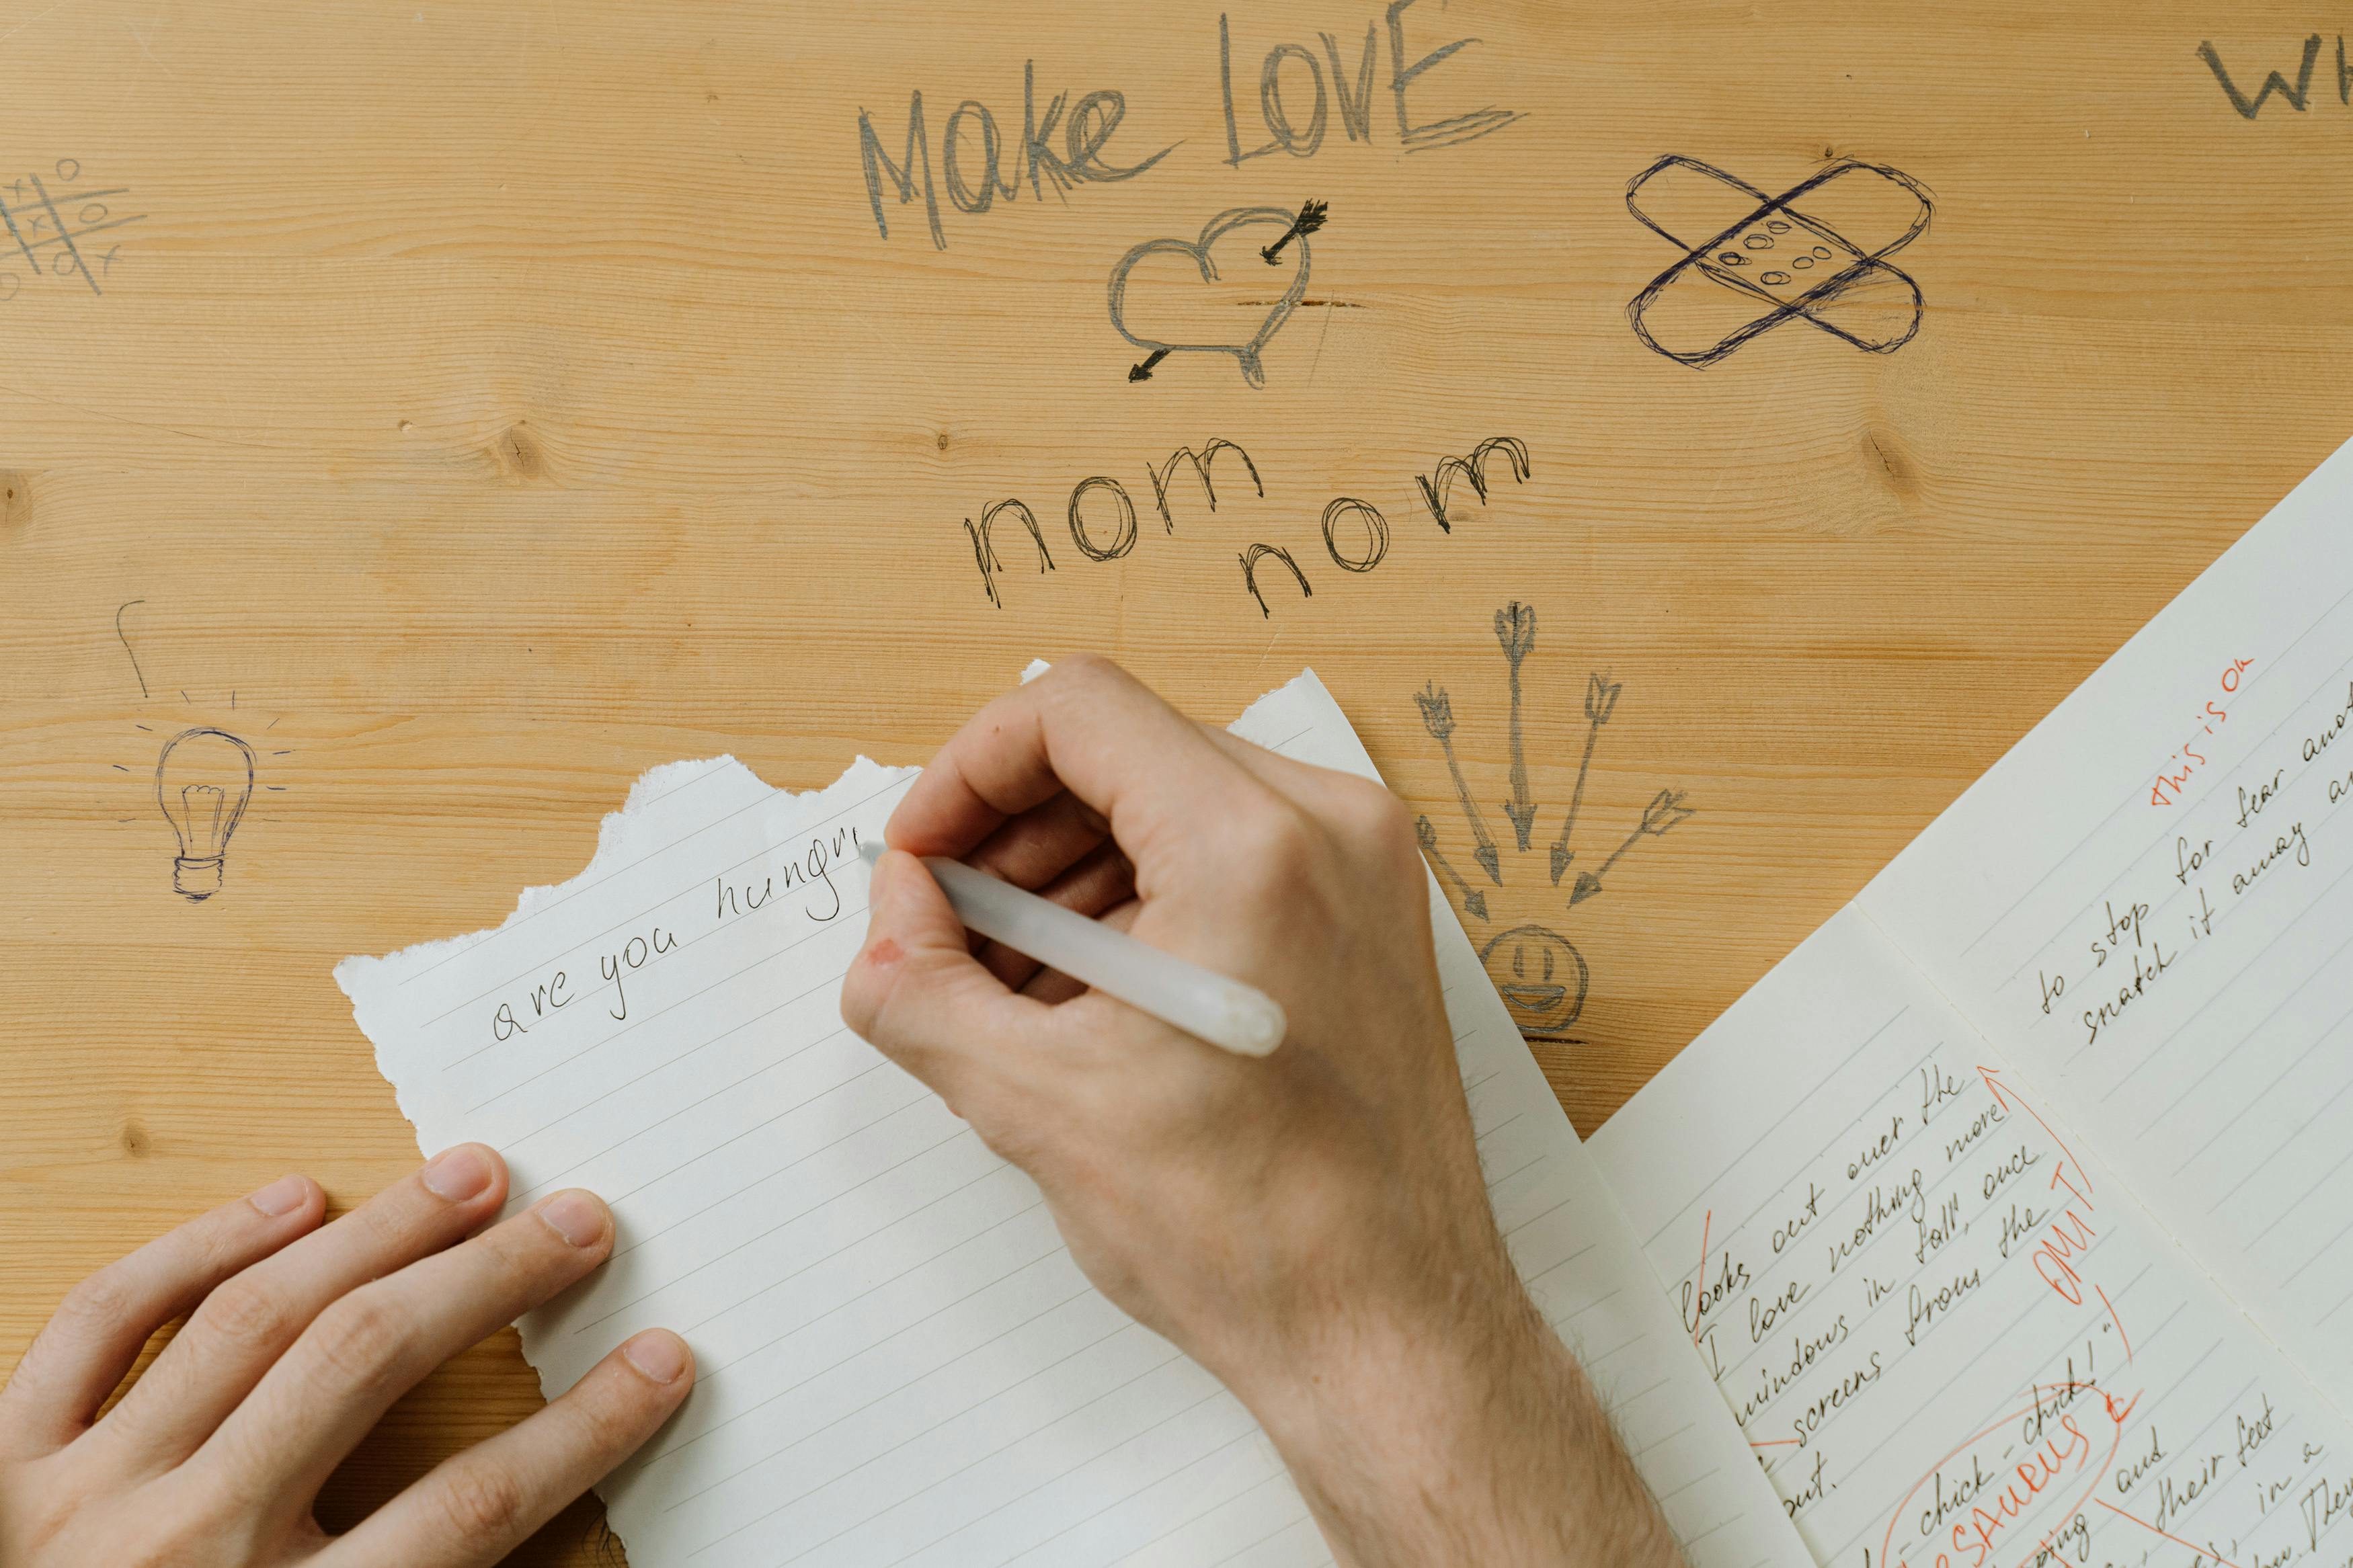 Make LOVE
nom
nom
are you hungr
This is on
to stop for fear
snatch it away
looks out over the
I love nothing more
windows in fall, once
screens from the
out.
OMIT
chick-chick!"
and
their feet
in a